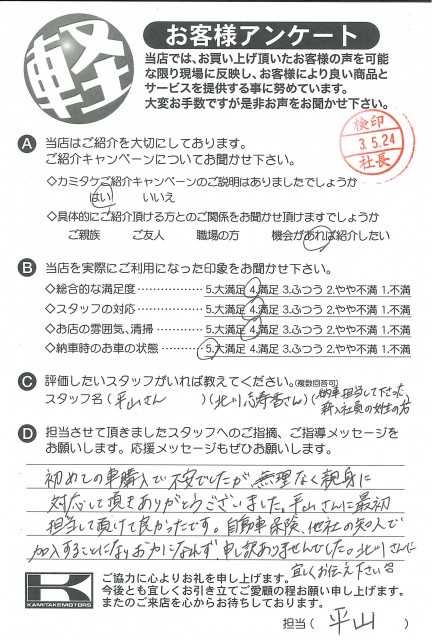 軽
お客様アンケート
当店では、お買い上げ頂いたお客様の声を可能
な限り現場に反映し、お客様により良い商品と
サービスを提供する事に努めています。
大変お手数ですが是非お声をお聞かせ下さい。
検印
3.5.24
社長
A 当店はご紹介を大切にしております。
ご紹介キャンペーンについてお聞かせ下さい。
◇カミタケご紹介キャンペーンのご説明はありましたでしょうか
はい いいえ
◇具体的にご紹介頂ける方とのご関係をお聞かせ頂けますでしょうか
ご親族 ご友人 職場の方 機会があれば紹介したい
B 当店を実際にご利用になった印象をお聞かせ下さい。
◇総合的な満足度……………… 5.大満足 4.満足 3.ふつう 2.やや不満 1.不満
◇スタッフの対応……………… 5.大満足 4.満足 3.ふつう 2.やや不満 1.不満
◇お店の雰囲気、清掃………… 5.大満足 4.満足 3.ふつう 2.やや不満 1.不満
◇納車時のお車の状態………… 5.大満足 4.満足 3.ふつう 2.やや不満 1.不満
C 評価したいスタッフがいれば教えてください。(複数回答可)
スタッフ名(平山さん)(北川志寿香さん)(納車担当して下さった
新入社員の女性の方)
D 担当させて頂きましたスタッフへのご指摘、ご指導メッセージを
お願いします。応援メッセージもぜひお願いします。
初めての車購入で不安でしたが無理なく親身に
対応して頂きありがとうございました。平山さんに最初
担当して頂けて良かったです。自動車保険、他社の知人で
加入することになりお力になれず、申し訳ありませんでした。北川さんに
宜しくお伝え下さい
K
KAMITAKEMOTORS
ご協力に心よりお礼を申し上げます。
今後とも宜しくお引き立てご愛顧の程お願い申し上げます。
またのご来店を心からお待ちしております。
担当( 平山 )